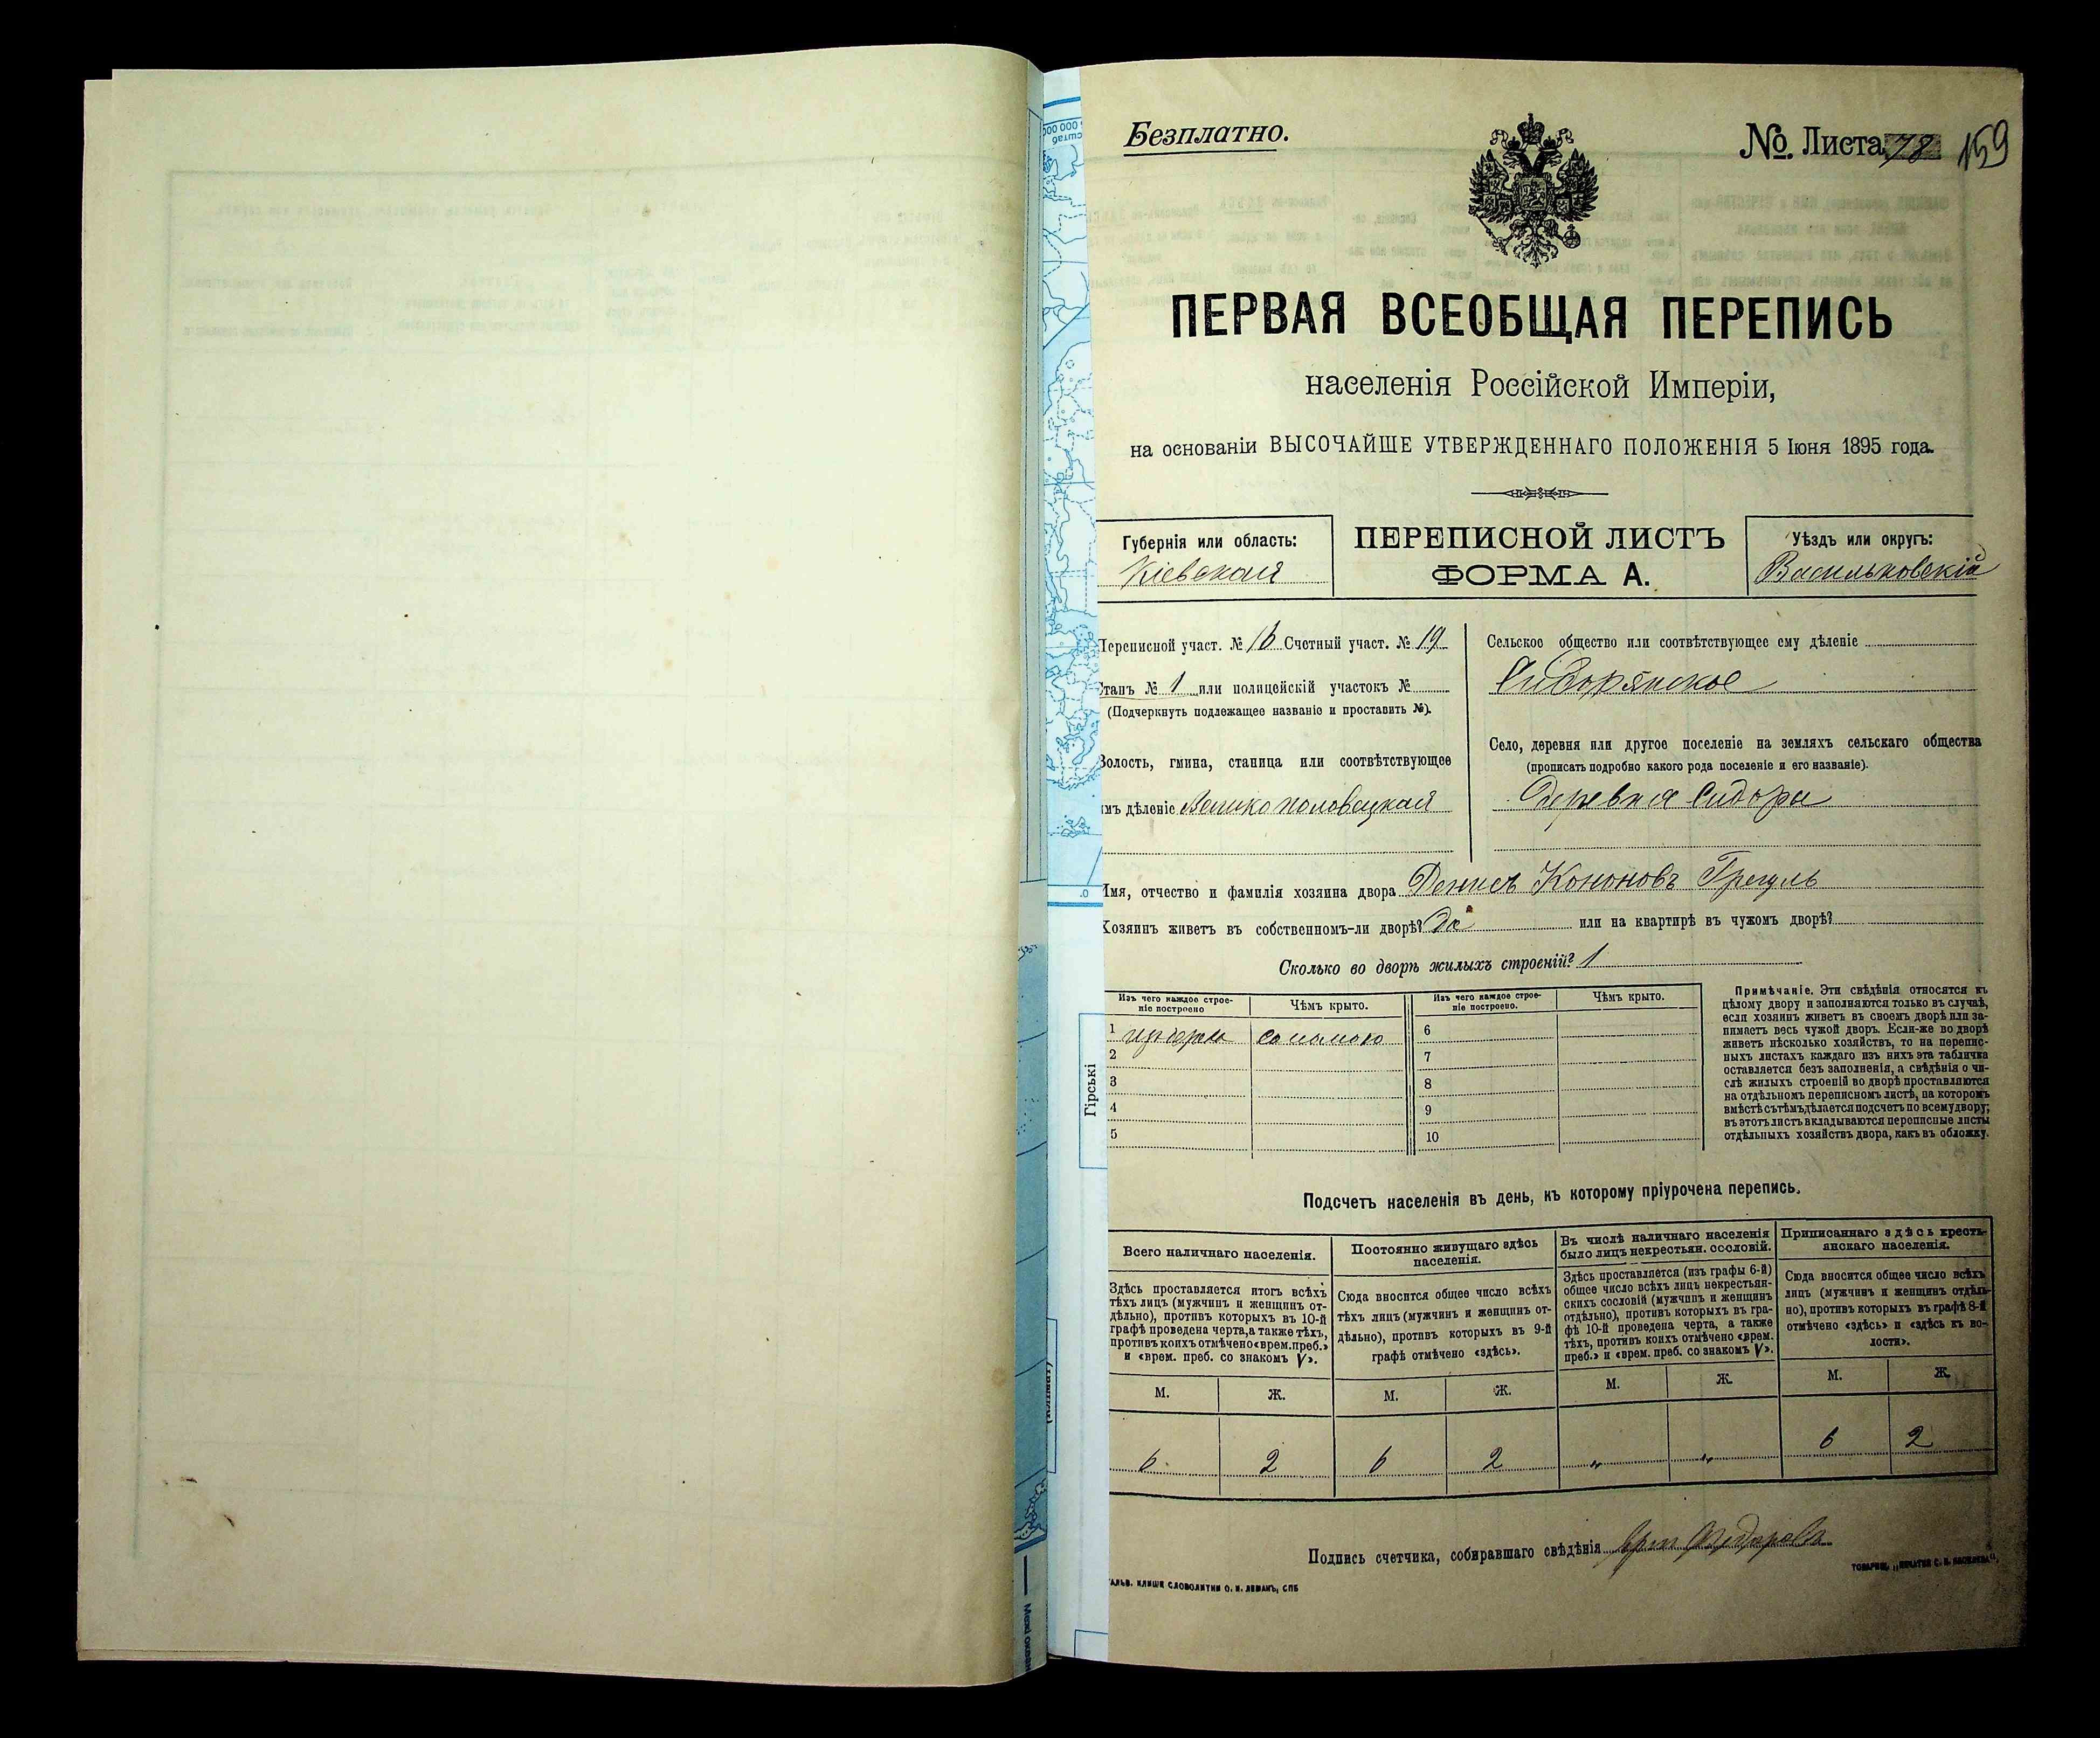 Безплатно.
№ Листа 78 159
ПЕРВАЯ ВСЕОБЩАЯ ПЕРЕПИСЬ
населенія Россійской Имперіи,
на основаніи ВЫСОЧАЙШЕ УТВЕРЖДЕННАГО ПОЛОЖЕНІЯ 5 Іюня 1895 года.
Губернія или область:
Кіевская
ПЕРЕПИСНОЙ ЛИСТЪ
ФОРМА А.
Уѣздъ или округъ:
Васильковскій
Переписной участ. № 16 Счетный участ. № 19
Станъ № 1 или полицейскій участокъ №
(Подчеркнуть подлежащее названіе и проставить №).
Волость, гмина, станица или соотвѣтствующее
имъ дѣленіе Великополовецкая
Сельское общество или соотвѣтствующее ему дѣленіе
Сидорянское
Село, деревня или другое поселеніе на земляхъ сельскаго общества
(прописать подробно какого рода поселеніе и его названіе).
Деревня Сидоры
Имя, отчество и фамилія хозяина двора Денисъ Кононовъ Грегуль
Хозяинъ живетъ въ собственномъ-ли дворѣ? Да или на квартирѣ въ чужомъ дворѣ?
Сколько во дворѣ жилыхъ строеній? 1
Изъ чего каждое строе-
ніе построено
Чѣмъ крыто.
Изъ чего каждое строе-
ніе построено.
Чѣмъ крыто.
1 соломою 6
2 7
3 8
4 9
5 10
Примѣчаніе. Эти свѣдѣнія относятся къ
цѣлому двору и заполняются только въ случаѣ,
если хозяинъ живетъ въ своемъ дворѣ или за-
нимаетъ весь чужой дворъ. Если-же во дворѣ
живетъ нѣсколько хозяйствъ, то на перепис-
ныхъ листахъ каждаго изъ нихъ эта табличка
оставляется безъ заполненія, а свѣдѣнія о чи-
слѣ жилыхъ строеній во дворѣ проставляются
на отдѣльномъ переписномъ листѣ, на которомъ
вмѣстѣ съ тѣмъ дѣлается подсчетъ по всему двору;
въ этотъ листъ вкладываются переписные листы
отдѣльныхъ хозяйствъ двора, какъ въ обложку.
Подсчетъ населенія въ день, къ которому пріурочена перепись.
Всего наличнаго населенія.
Здѣсь проставляется итогъ всѣхъ
тѣхъ лицъ (мужчинъ и женщинъ от-
дѣльно), противъ которыхъ въ 10-й
графѣ проведена черта, а также тѣхъ,
противъ коихъ отмѣчено «врем. преб.»
и «врем. преб. со знакомъ V».
Постоянно живущаго здѣсь
населенія.
Сюда вносится общее число всѣхъ
тѣхъ лицъ (мужчинъ и женщинъ от-
дѣльно), противъ которыхъ въ 9-й
графѣ отмѣчено «здѣсь».
Въ числѣ наличнаго населенія
было лицъ некрестьян. сословій.
Здѣсь проставляется (изъ графы 6-й)
общее число всѣхъ лицъ некрестьян-
скихъ сословій (мужчинъ и женщинъ
отдѣльно), противъ которыхъ въ гра-
фѣ 10-й проведена черта, а также
тѣхъ, противъ коихъ отмѣчено «врем.
преб.» и «врем. преб. со знакомъ V».
Приписаннаго здѣсь кресть-
янскаго населенія.
Сюда вносится общее число всѣхъ
лицъ (мужчинъ и женщинъ отдѣль-
но), противъ которыхъ въ графѣ 8-й
отмѣчено «здѣсь» и «здѣсь къ во-
лости».
М. Ж. М. Ж. М. Ж. М. Ж.
6 2 6 2 „ „ 6 2
Подпись счетчика, собиравшаго свѣдѣнія
ГАЛЬВ. КЛИШЕ СЛОВОЛИТНИ О. И. ЛЕМАНЪ, СПБ
Гірські